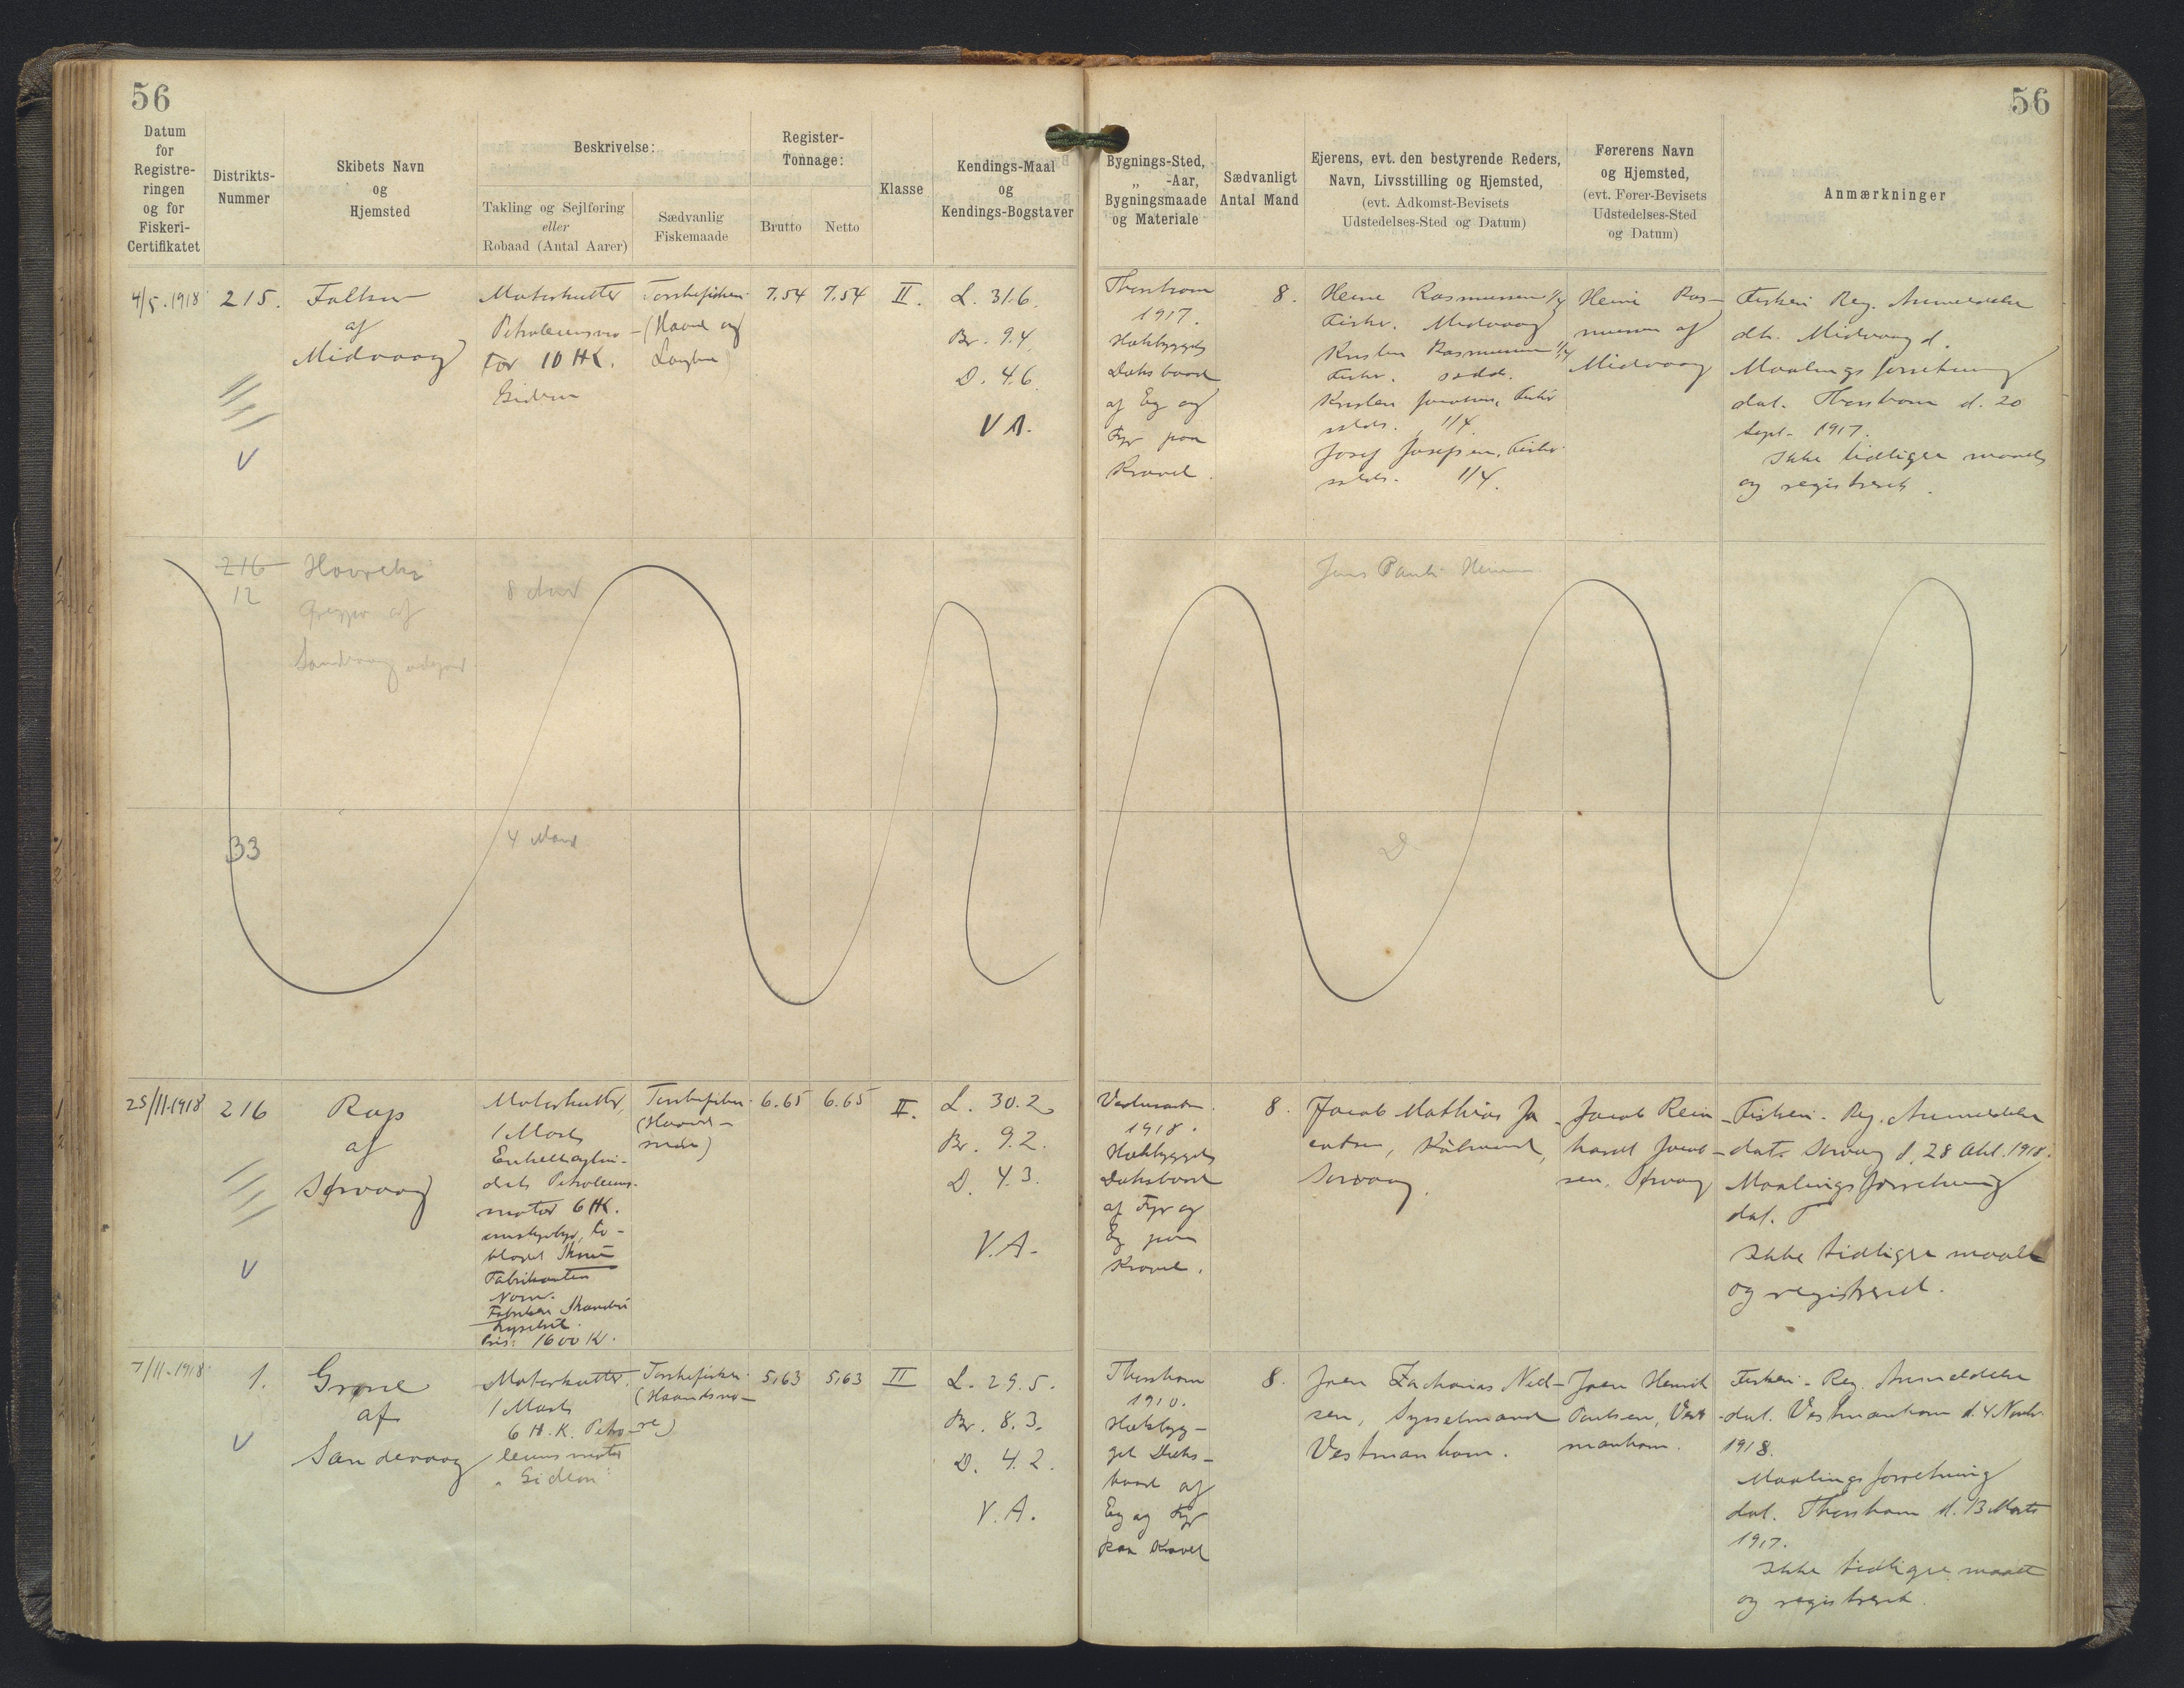 56
56
Datum
for
Registre-
ringen
og for
Fiskeri-
Certifikatet
Distrikts-
Nummer
Skibets Navn
og
Hjemsted
Beskrivelse:
Takling og Sejlføring
eller
Robaad (Antal Aarer)
Sædvanlig
Fiskemaade
Register-
Tonnage:
Brutto
Netto
Klasse
Kendings-Maal
og
Kendings-Bogstaver
Bygnings-Sted,
„ -Aar,
Bygningsmaade
og Materiale
Sædvanligt
Antal Mand
Ejerens, evt. den bestyrende Reders,
Navn, Livsstilling og Hjemsted,
(evt. Adkomst-Bevisets
Udstedelses-Sted og Datum)
Førerens Navn
og Hjemsted,
(evt. Fører-Bevisets
Udstedelses-Sted
og Datum)
Anmærkninger
4/5.1918
215.
af
Midvaag
Motorkutter
Petroleumsmo-
tor 10 HK.
Torskefiskeri
(Haand og
7.54
7.54
II.
L. 31.6.
Br. 9.4.
D. 4.6.
V A.
Thorshavn
1917.
Hækbygget
Dæksbaad
af Eg og
Fyr paa
Kravel.
8.
Rasmussen 1/4
Fisker. Midvaag
Rasmussen 1/4
Fisker.
1/4.
Josef Josefsen, Fisker
1/4.
Heine Ras-
mussen af
Midvaag
Fiskeri Reg. Anmeldelse
dt. Midvaag d.
Maalingsforretning
dat. Thorshavn d. 20
Sept. 1917.
Ikke tidligere maalt
og registreret.
216
12
af
8 Mand
Jens Pauli
33
4 Mand
25/11.1918
216
Rap
af
Sørvaag
Motorkutter,
1 Mast
Petroleums-
motor 6 HK.
Fabrikanten
Navn.
Pris: 1600 Kr.
Torskefiskeri
(Haand-
snøre)
6.65
6.65
II.
L. 30.2
Br. 9.2.
D. 4.3.
V.A.
1918.
Hækbygget
Dæksbaad
af Fyr og
Eg paa
Kravel.
8.
Jacob Mathias Ja-
cobsen,
Sørvaag.
Jacob Rein-
hardt Jacob-
sen, Sørvaag
Fiskeri-Reg. Anmeldelse
dat. Sørvaag d. 28 Okt. 1918.
Maalingsforretning
dat.
Ikke tidligere maalt
og registreret.
7/11-1918
1.
af
Sandevaag
Motorkutter.
1 Mast
6 H.K. Petro-
leumsmotor
"Gideon"
Torskefiskeri
(Haandsnø-
re)
5,63
5,63
II
L. 29.5.
Br. 8.3.
D. 4.2.
V.A.
Thorshavn
1910.
Hækbyg-
get Dæks-
baad af
Eg og Fyr
paa Kravel
8.
Joen Zacharias Niel-
sen, Sysselmand
Vestmanhavn.
Joen Henrik
Poulsen, Vest-
manhavn.
Fiskeri-Reg. Anmeldelse
dat. Vestmanhavn d. 4 Novbr.
1918.
Maalingsforretning
dat. Thorshavn d. 13 Marts
1917.
Ikke tidligere maalt
og registreret.